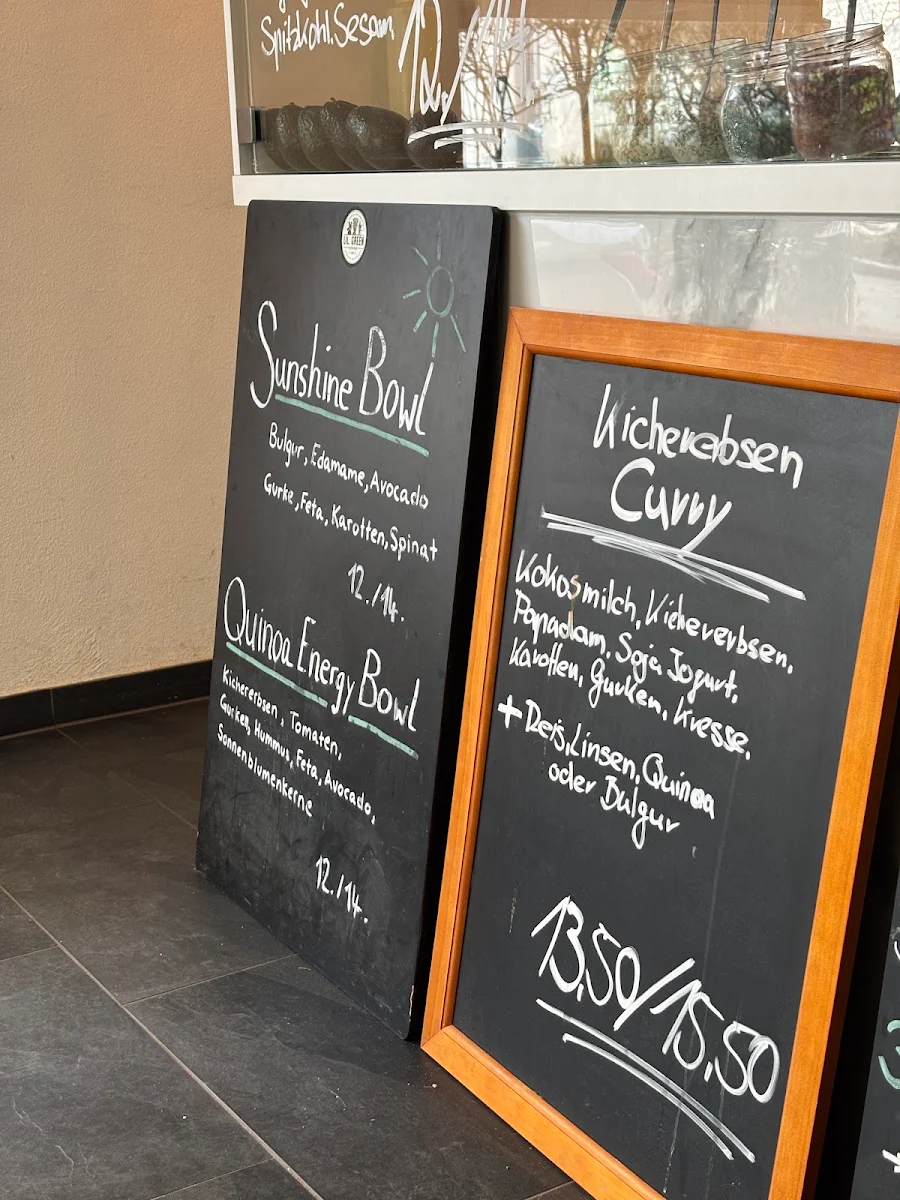 Spitzkohl, Sesam
12./14.
LIL GREEN
Sunshine Bowl
Bulgur, Edamame, Avocado
Gurke, Feta, Karotten, Spinat
12./14.
Quinoa Energy Bowl
Kichererbsen, Tomaten,
Gurken, Hummus, Feta, Avocado,
Sonnenblumenkerne
12./14.
Kichererbsen
Curry
Kokosmilch, Kichererbsen,
Papadam, Soja Jogurt,
Karotten, Gurken, Kresse.
+ Reis, Linsen, Quinoa
oder Bulgur
13,50/15,50